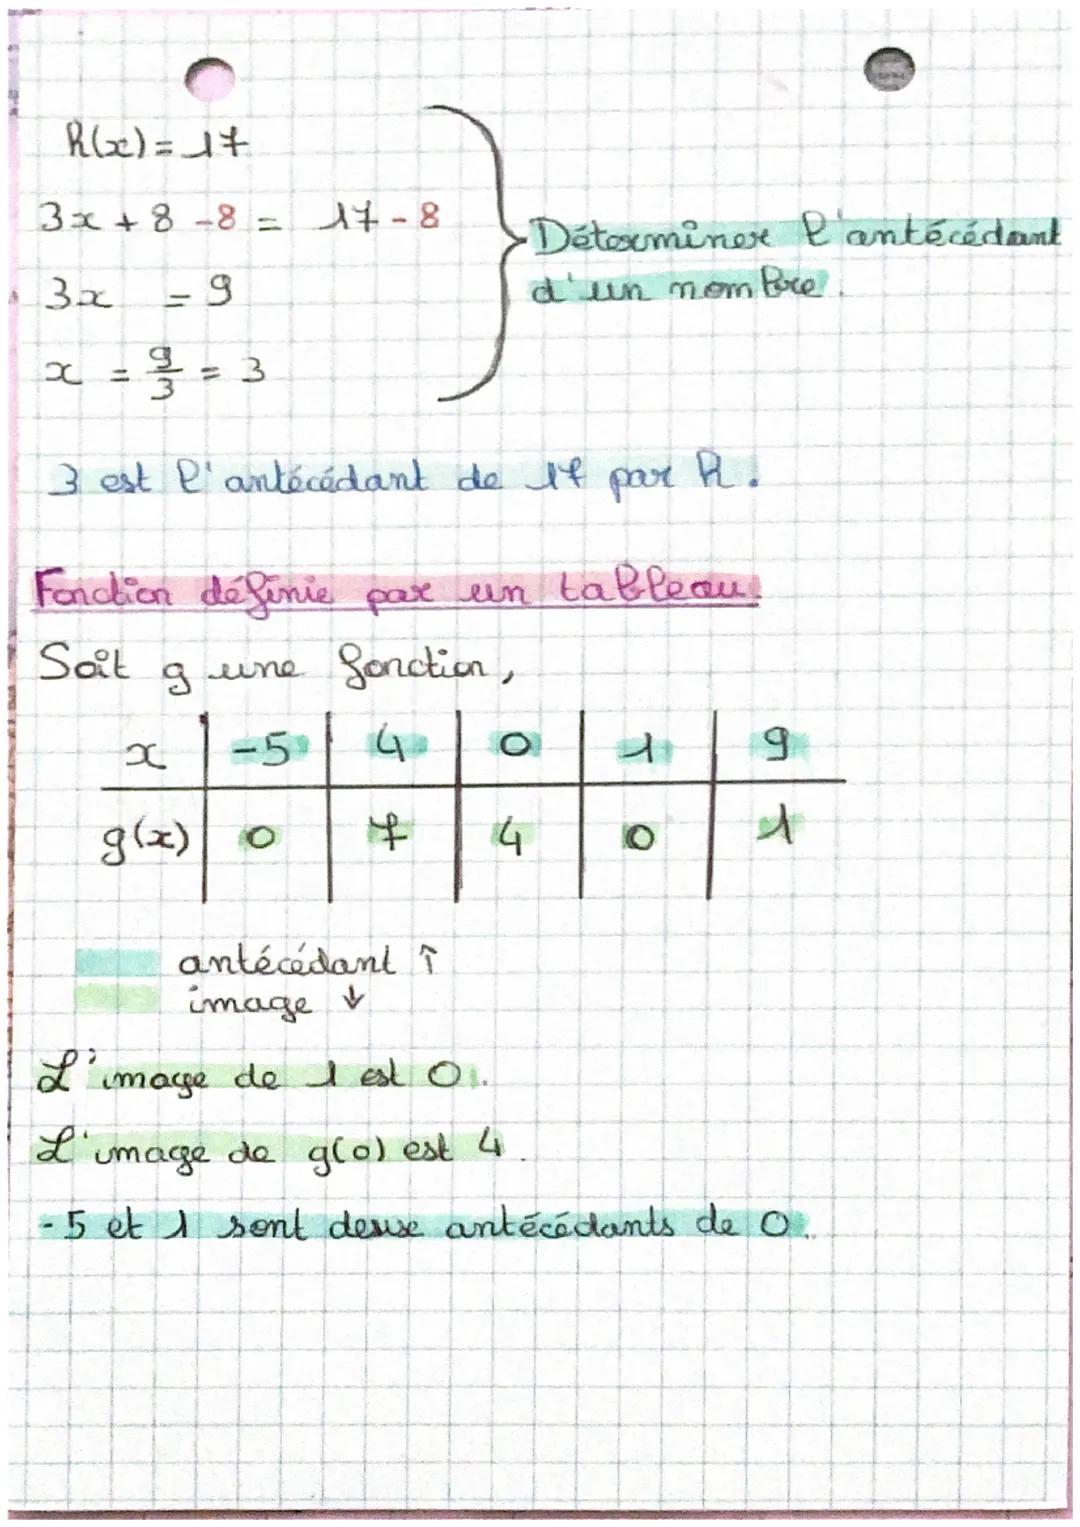 h(x) = 17
3x + 8 - 8 = 17 - 8
3x = 9
x = 9/3 = 3
Déterminer l'antécédant
d'un nombre.
3 est l'antécédant de 17 par h.
Fonction définie par un tableau.
Soit g une fonction,
x | -5 | 4 | 0 | 1 | 9
g(x) | 0 | 7 | 4 | 0 | 1
antécédant ↑
image ↓
L'image de 1 est 0.
L'image de g(0) est 4.
-5 et 1 sont deux antécédants de 0.